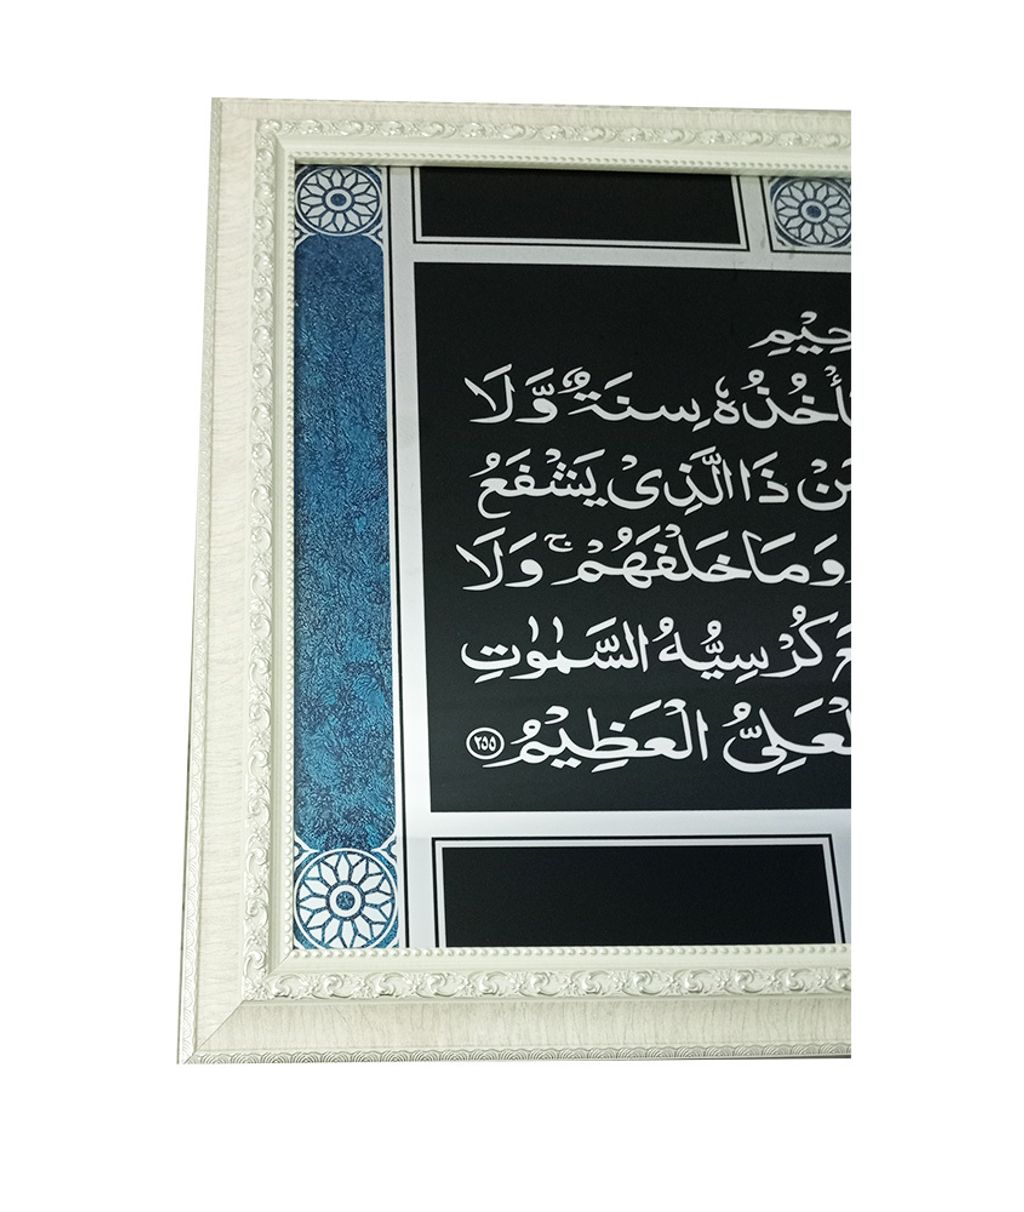 حِيْمِ
تَأْخُذُهٗ سِنَةٌ وَّلَا
مَنْ ذَا الَّذِىْ يَشْفَعُ
وَمَا خَلْفَهُمْ ۚ وَلَا
كُرْسِيُّهُ السَّمٰوٰتِ
الْعَلِىُّ الْعَظِيْمُ ٢٥٥